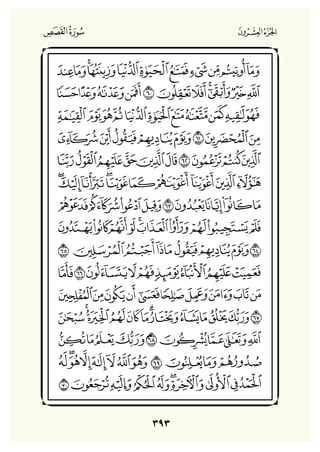 الجُزْءُ العِشْرُونَ سُورَةُ القَصَصِ
وَمَآ أُوتِيتُم مِّن شَىْءٍ فَمَتَٰعُ ٱلْحَيَوٰةِ ٱلدُّنْيَا وَزِينَتُهَا ۚ وَمَا عِندَ
ٱللَّهِ خَيْرٌ وَأَبْقَىٰٓ ۚ أَفَلَا تَعْقِلُونَ ٦٠ أَفَمَن وَعَدْنَٰهُ وَعْدًا حَسَنًا
فَهُوَ لَٰقِيهِ كَمَن مَّتَّعْنَٰهُ مَتَٰعَ ٱلْحَيَوٰةِ ٱلدُّنْيَا ثُمَّ هُوَ يَوْمَ ٱلْقِيَٰمَةِ
مِنَ ٱلْمُحْضَرِينَ ٦١ وَيَوْمَ يُنَادِيهِمْ فَيَقُولُ أَيْنَ شُرَكَآءِىَ
ٱلَّذِينَ كُنتُمْ تَزْعُمُونَ ٦٢ قَالَ ٱلَّذِينَ حَقَّ عَلَيْهِمُ ٱلْقَوْلُ رَبَّنَا
هَٰٓؤُلَآءِ ٱلَّذِينَ أَغْوَيْنَآ أَغْوَيْنَٰهُمْ كَمَا غَوَيْنَا ۖ تَبَرَّأْنَآ إِلَيْكَ ۖ
مَا كَانُوٓا۟ إِيَّانَا يَعْبُدُونَ ٦٣ وَقِيلَ ٱدْعُوا۟ شُرَكَآءَكُمْ فَدَعَوْهُمْ
فَلَمْ يَسْتَجِيبُوا۟ لَهُمْ وَرَأَوُا۟ ٱلْعَذَابَ ۚ لَوْ أَنَّهُمْ كَانُوا۟ يَهْتَدُونَ
٦٤ وَيَوْمَ يُنَادِيهِمْ فَيَقُولُ مَاذَآ أَجَبْتُمُ ٱلْمُرْسَلِينَ ٦٥
فَعَمِيَتْ عَلَيْهِمُ ٱلْأَنۢبَآءُ يَوْمَئِذٍ فَهُمْ لَا يَتَسَآءَلُونَ ٦٦ فَأَمَّا
مَن تَابَ وَءَامَنَ وَعَمِلَ صَٰلِحًا فَعَسَىٰٓ أَن يَكُونَ مِنَ ٱلْمُفْلِحِينَ
٦٧ وَرَبُّكَ يَخْلُقُ مَا يَشَآءُ وَيَخْتَارُ ۗ مَا كَانَ لَهُمُ ٱلْخِيَرَةُ ۚ سُبْحَٰنَ
ٱللَّهِ وَتَعَٰلَىٰ عَمَّا يُشْرِكُونَ ٦٨ وَرَبُّكَ يَعْلَمُ مَا تُكِنُّ
صُدُورُهُمْ وَمَا يُعْلِنُونَ ٦٩ وَهُوَ ٱللَّهُ لَآ إِلَٰهَ إِلَّا هُوَ ۖ لَهُ
ٱلْحَمْدُ فِى ٱلْأُولَىٰ وَٱلْءَاخِرَةِ ۖ وَلَهُ ٱلْحُكْمُ وَإِلَيْهِ تُرْجَعُونَ ٧٠
٣٩٣